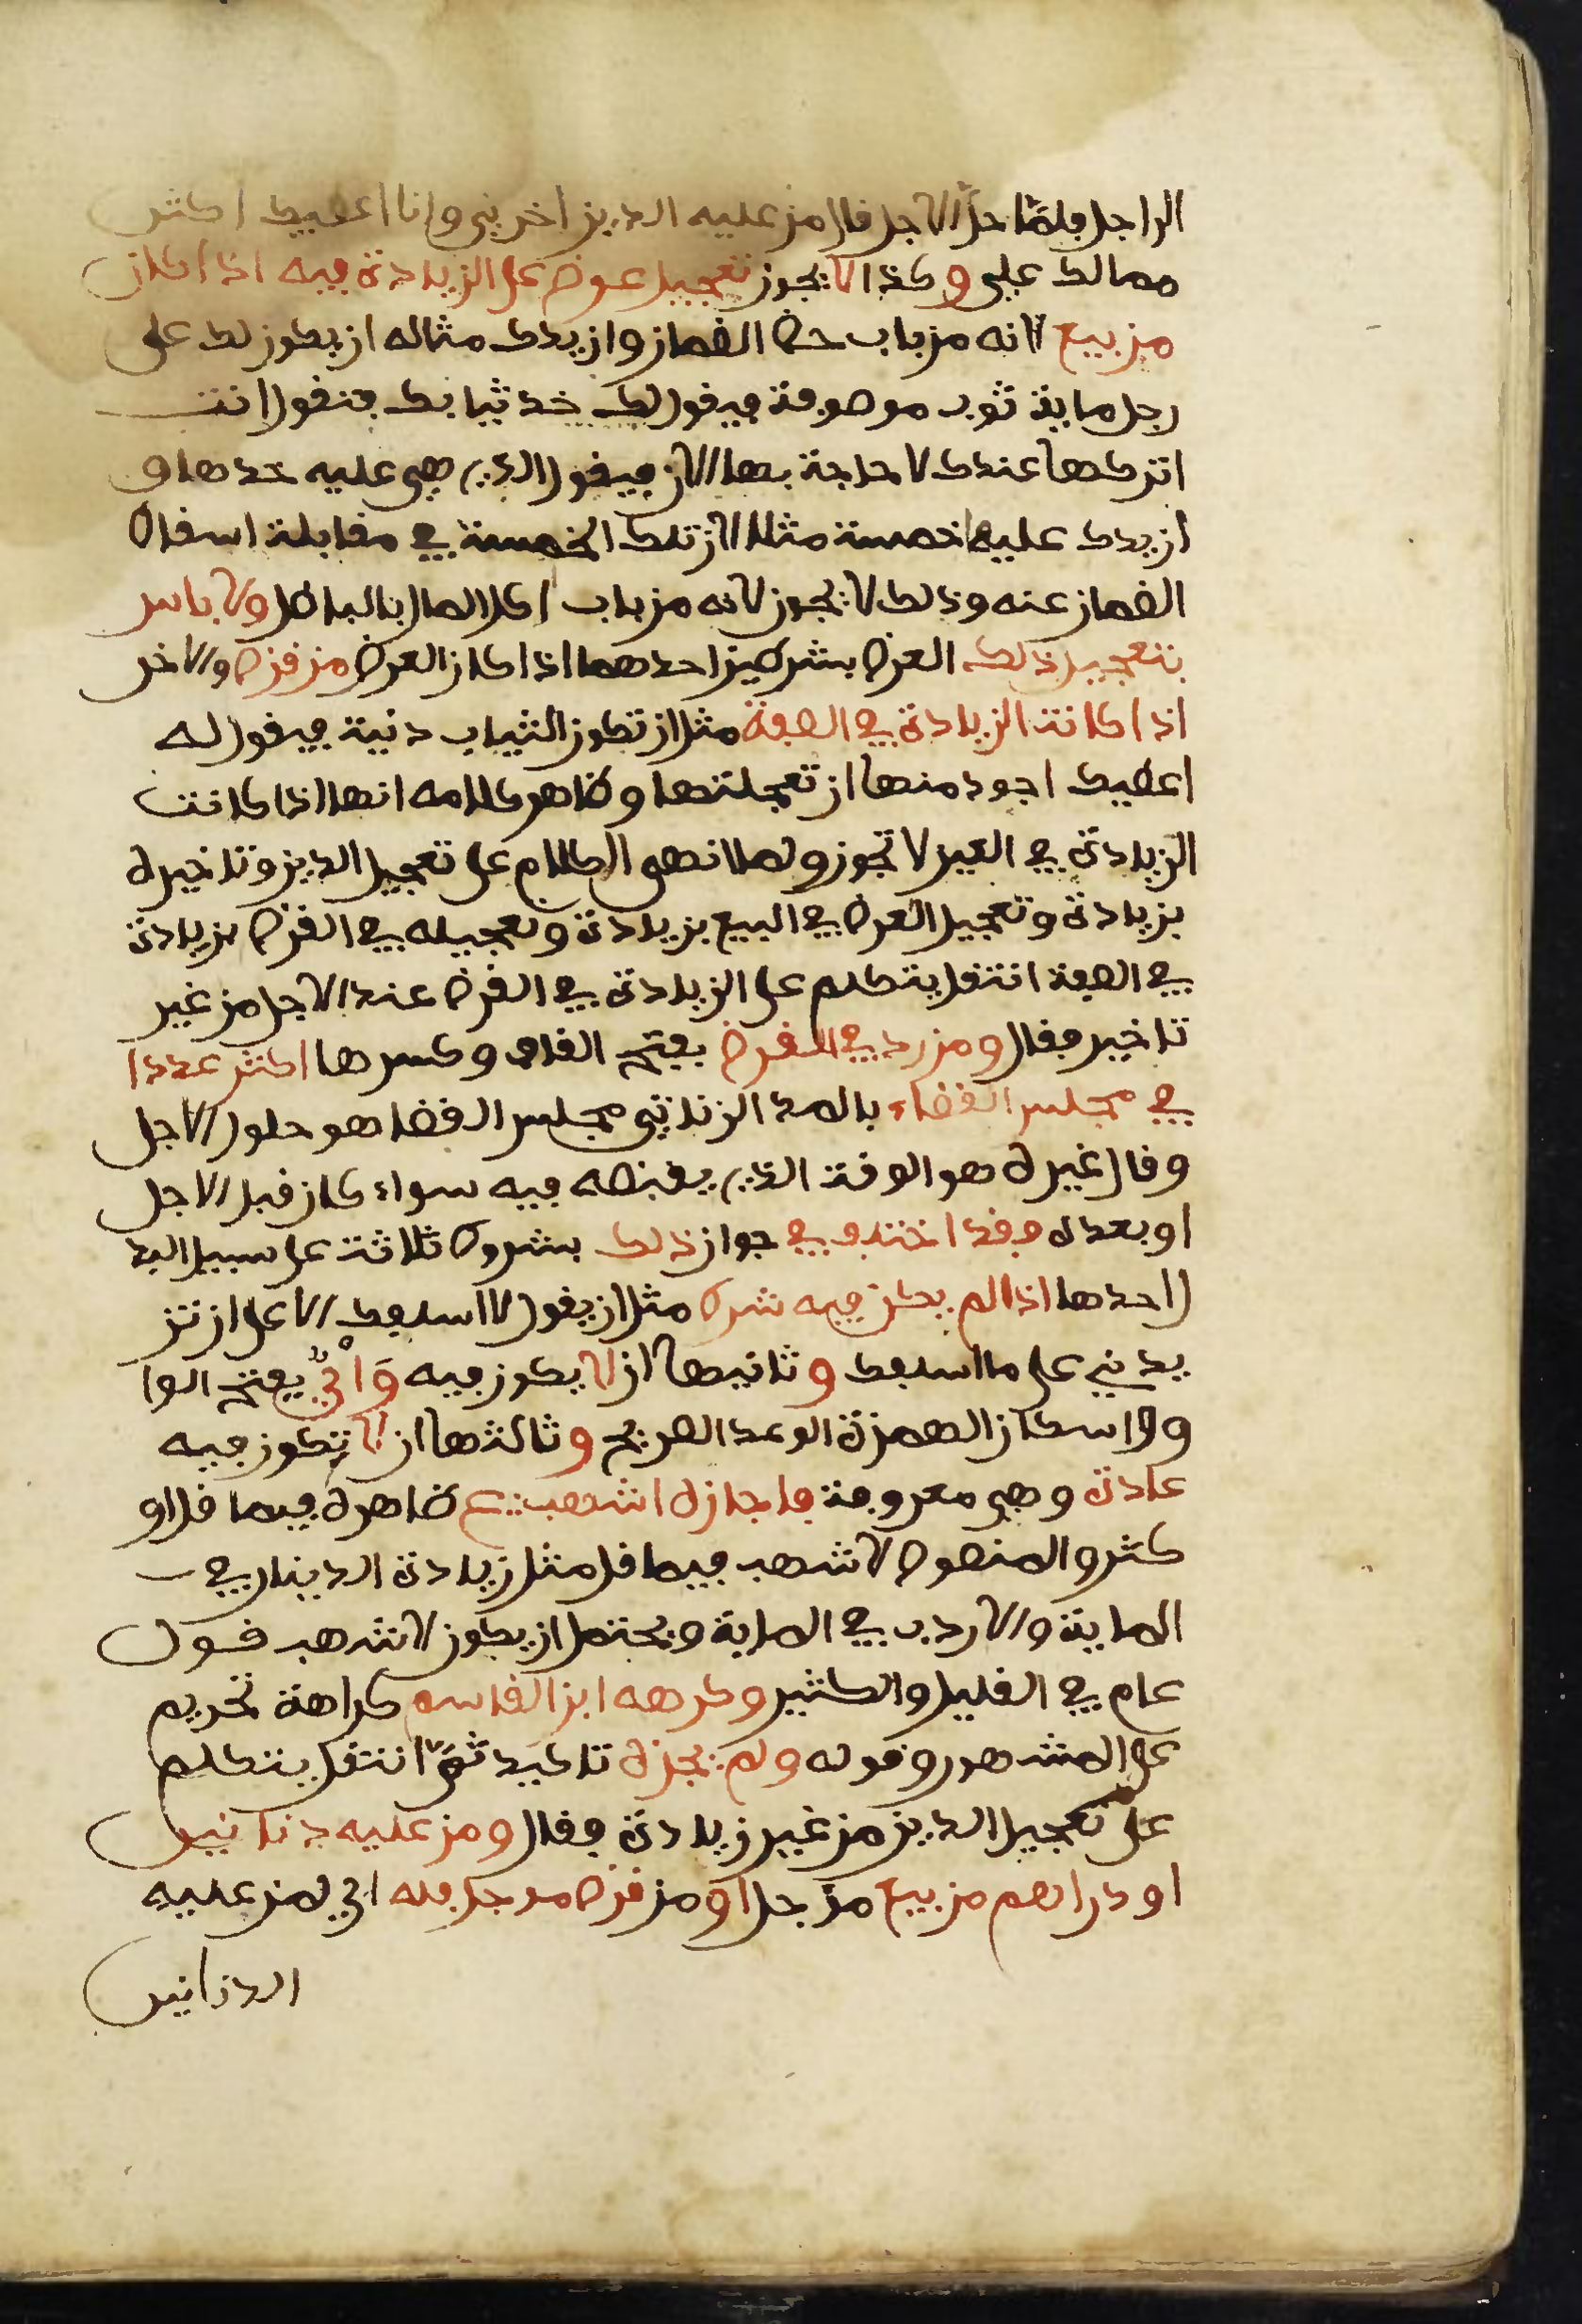 الى اجل فلمّا حلّ الاجل قال من عليه الدين اخرني وانا اعطيك اكثر
مما لك علي وكذا لا يجوز تعجيل عوض على الزيادة فيه اذا كان
من بيع لانه من باب حط الضمان وازيدك مثاله ان يكون لك على
رجل ماية ثوب موصوفة فيقول لك خذ ثيابك فتقول انت
اتركها عندك لا حاجة بها الان فيقول الذي هي عليه خذها و
ازيدك عليها خمسة مثلا لان تلك الخمسة في مقابلة اسقاط
الضمان عنه وذلك لا يجوز لانه من باب اكل المال بالباطل ولا باس
بتعجيل ذلك العرض بشرطين احدهما اذا كان العرض من قرض والاخر
اذا كانت الزيادة في الصفة مثل ان تكون الثياب دنية فيقول له
اعطيك اجود منها ان تعجلتها وظاهر كلامه انها اذا كانت
الزيادة في العين لا تجوز ولما انهى الكلام على تعجيل الدين وتاخيره
بزيادة وتعجيل العرض في البيع بزيادة وتعجيله في القرض بزيادة
في الصفة انتقل يتكلم على الزيادة في القرض عند الاجل من غير
تاخير فقال ومن رد في القرض بفتح القاف وكسرها اكثر عددا
في مجلس القضاء بالمد الزناتي مجلس القضا هو حلول الاجل
وقال غيره هو الوقت الذي يقبضه فيه سواء كان قبل الاجل
او بعده فقد اختلف في جواز ذلك بشروط ثلاثة على سبيل البد
ل احدها اذا لم يكن فيه شرط مثل ان يقول لا اسلفك الا على ان تز
يدني على ما اسلفك وثانيها ان لا يكون فيه وَاْيٌ بفتح الوا
و واسكان الهمزة الوعد الصريح وثالثها ان لا تكون فيه
عادة وهي معروفة فاجازه اشهب ع ظاهره فيما قل او
كثر والمنصوص لاشهب فيما قل مثل زيادة الدينار في
الماية والاردب في الماية ويحتمل ان يكون لاشهب قول
عام في القليل والكثير وكرهه ابن القاسم كراهة تحريم
على المشهور وقوله ولم يجزه تاكيد ثمّ انتقل يتكلم
على تعجيل الدين من غير زيادة فقال ومن عليه دنانير
او دراهم من بيع مؤجل او من قرض مؤجل فله اي لمن عليه
الدنانير